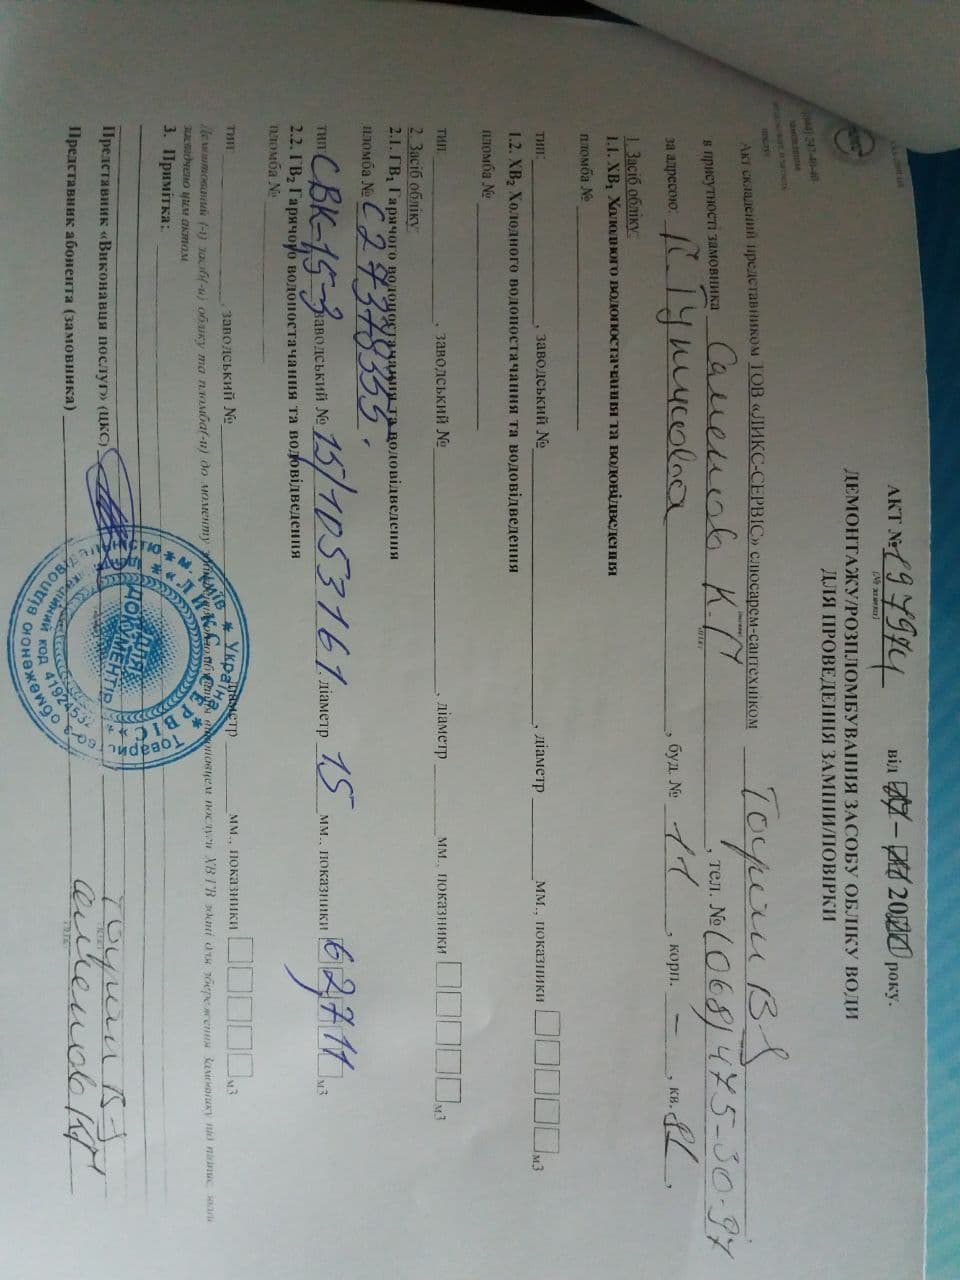 (044) 247-40-40
АКТ № 197974
від 2020 року.
ДЕМОНТАЖУ/РОЗПЛОМБУВАННЯ ЗАСОБУ ОБЛІКУ ВОДИ
ДЛЯ ПРОВЕДЕННЯ ЗАМІНИ/ПОВІРКИ
Акт складений представником ТОВ «ЛИКС-СЕРВІС» слюсарем-сантехніком
в присутності замовника Саменов К.П , тел. № (068) 475-30-97
за адресою: , буд. № 11 , корп. – , кв. 82 ,
1. Засіб обліку:
1.1. ХВ₁ Холодного водопостачання та водовідведення
пломба №
тип: , заводський № , діаметр мм., показники м3
1.2. ХВ₂ Холодного водопостачання та водовідведення
пломба №
тип , заводський № , діаметр мм., показники м3
2. Засіб обліку:
2.1. ГВ₁ Гарячого водопостачання та водовідведення
пломба № С27378355
тип СВК-1,5-3 заводський № 15/1053161 , діаметр 15 мм., показники 62711 м3
2.2. ГВ₂ Гарячого водопостачання та водовідведення
пломба №
тип , заводський № діаметр мм., показники м3
Демонтований (-і) засіб(-и) обліку та пломба(-и) до моменту послуги ХВ/ГВ здані для збереження Замовнику під підпис,
засвідчено цим актом
3. Примітка:
Представник «Виконавця послуг» (ЦКС)
Представник абонента (замовника)
Україна * м. Київ * Товариство з обмеженою відповідальністю
* «ЛИКС-СЕРВІС» *
ДЛЯ
ДОКУМЕНТІВ